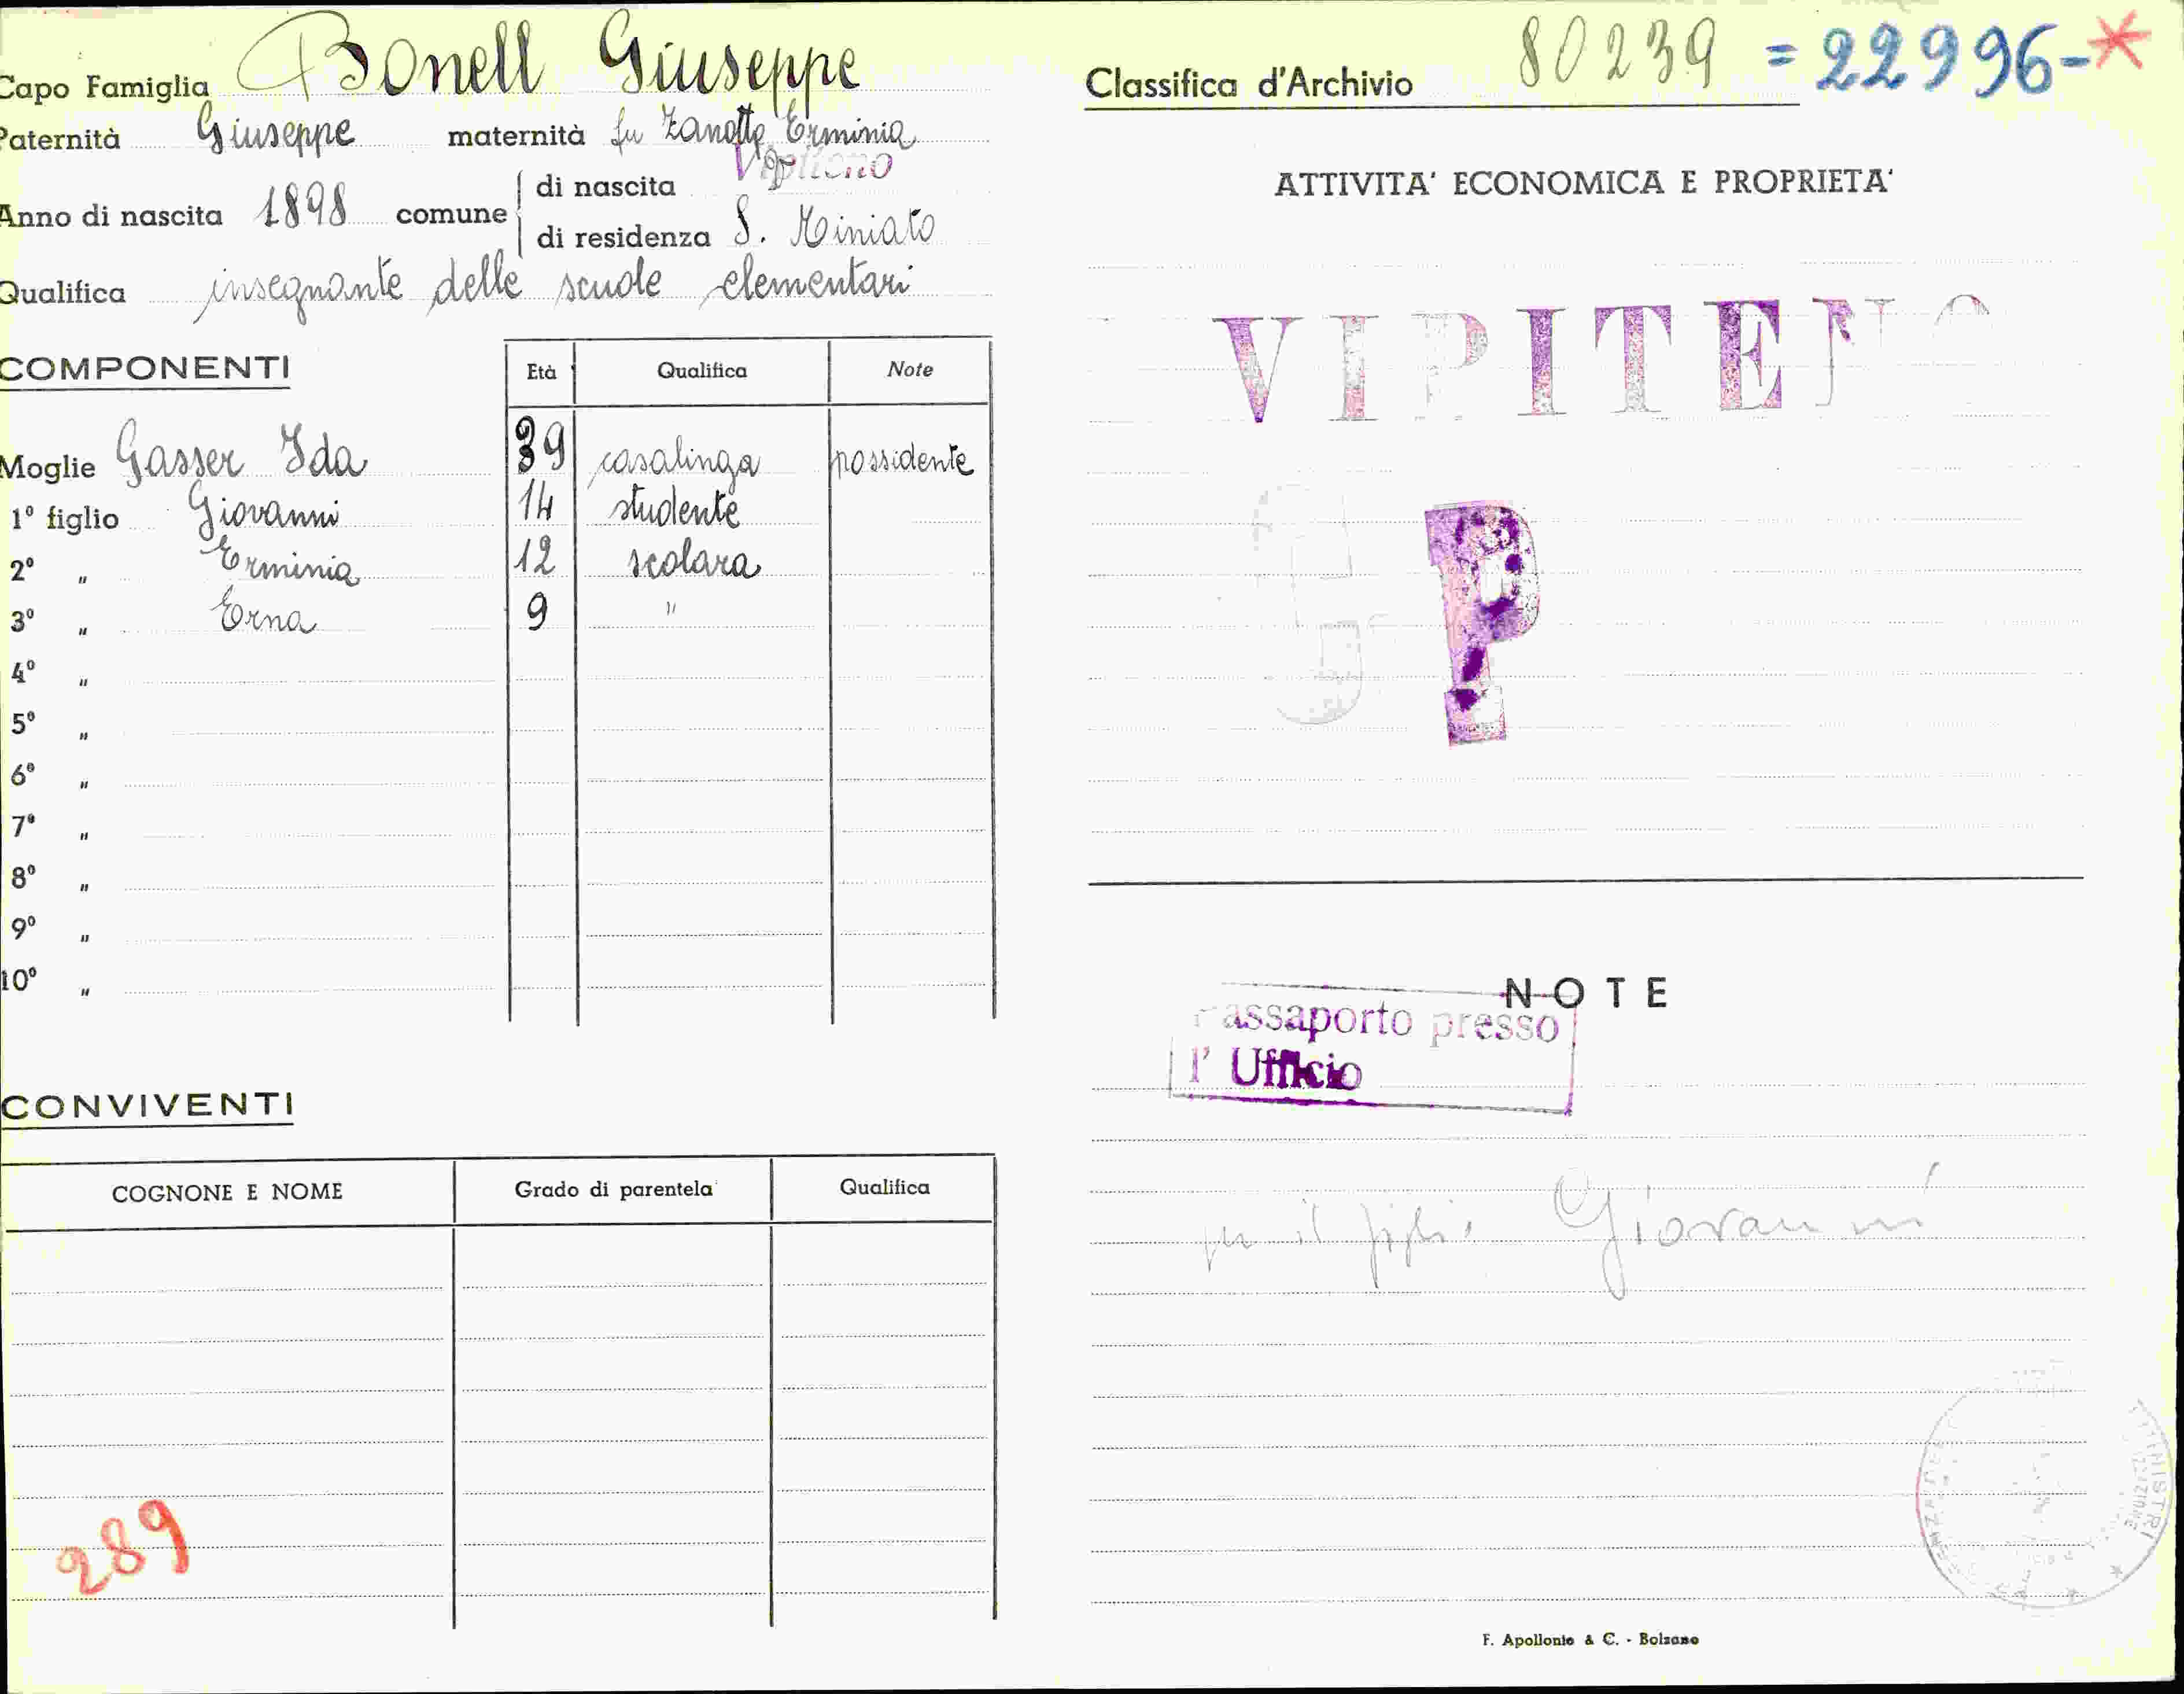 Capo Famiglia Bonell Giuseppe
Paternità Giuseppe maternità fu Zanotta Erminia
Anno di nascita 1898 comune di nascita Vipiteno
di residenza S. Miniato
Qualifica insegnante delle scuole elementari
COMPONENTI
Età Qualifica Note
Moglie Gasser Ida 39 casalinga possidente
1° figlio Giovanni 14 studente
2° „ Erminia 12 scolara
3° „ Erna 9 "
4° „
5° „
6° „
7° „
8° „
9° „
10° „
CONVIVENTI
COGNONE E NOME Grado di parentela Qualifica
289
Classifica d'Archivio 80239 = 22996-*
ATTIVITA' ECONOMICA E PROPRIETA'
VIPITENO
P
NOTE
Passaporto presso
l' Ufficio
per il figlio Giovanni
F. Apollonio & C. - Bolzano